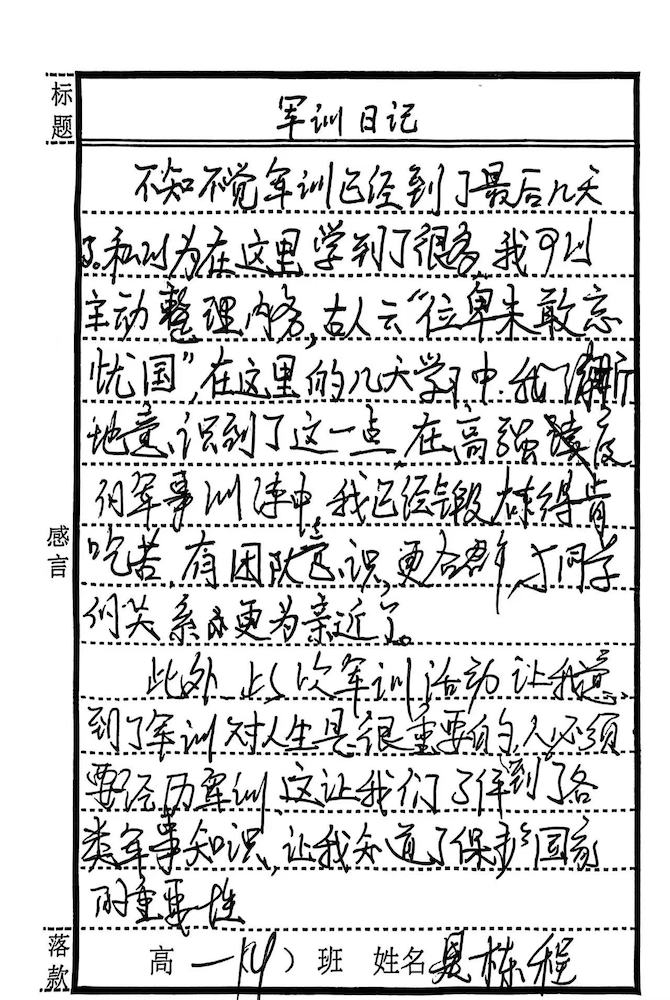 标题
军训日记
不知不觉军训已经到了最后几天
了。私以为在这里学到了很多，我可以
主动整理内务，古人云“位卑未敢忘
忧国”，在这里的几天学习中，我渐渐
地意识到了这一点，在高强度
的军事训练中，我已经锻炼得肯
吃苦，有团队意识，更合群，与同学
们关系亦更为亲近了。
此外，此次军训活动让我意
到了军训对人生是很重要的，人必须
要经历军训，这让我们了解到了各
类军事知识，让我知道了保护国家
的重要性
感言
落款
高一（4）班 姓名 栋程